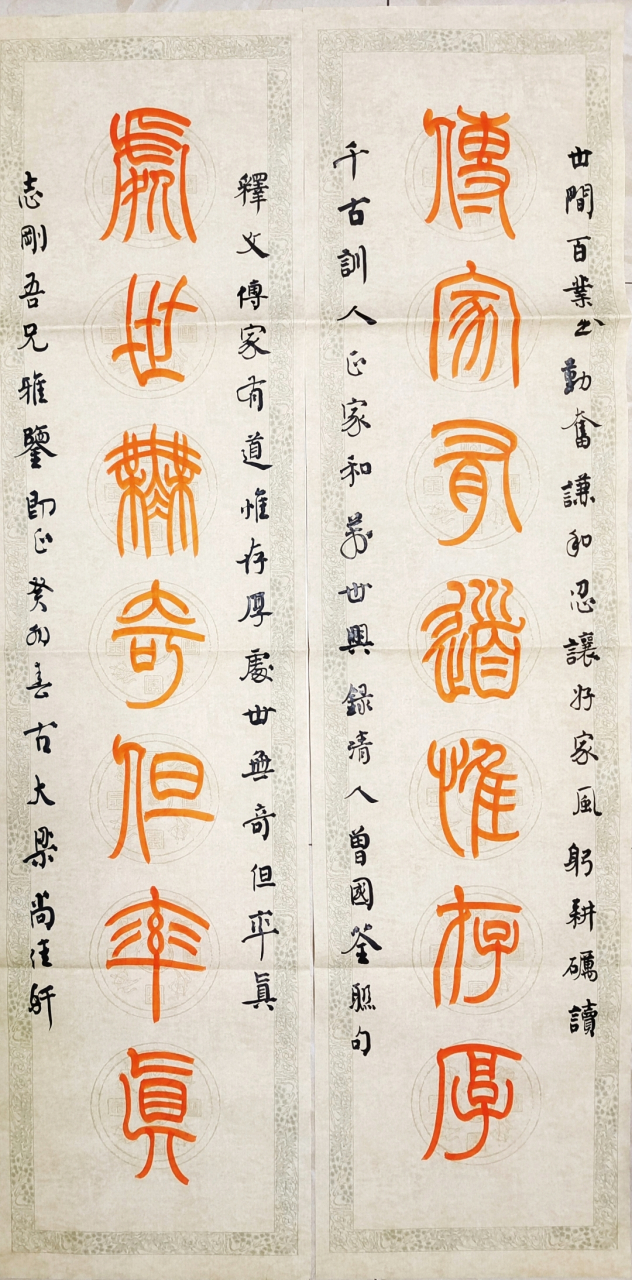 世間百業出勤奮謙和忍讓好家風躬耕礪讀
傳家有道惟存厚
千古訓人正家和萬世興錄清人曾國荃聯句
釋文傳家有道惟存厚處世無奇但率眞
處世無奇但率眞
志剛吾兄雅鑒即正癸卯春古大梁尚佳軒